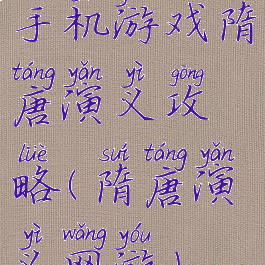 手机游戏隋
táng yǎn yì gōng
唐演义攻
lüè suí táng yǎn
略(隋唐演
yì wǎng yóu
义网游)